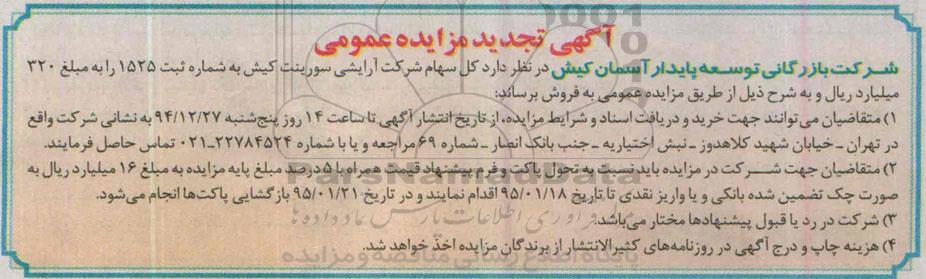 آگهی تجدید مزایده عمومی
شرکت بازرگانی توسعه پایدار آسمان کیش در نظر دارد کل سهام شرکت آرایشی سورینت کیش به شماره ثبت ۱۵۲۵ را به مبلغ ۳۲۰
میلیارد ریال و به شرح ذیل از طریق مزایده عمومی به فروش برساند:
۱) متقاضیان می‌توانند جهت خرید و دریافت اسناد و شرایط مزایده، از تاریخ انتشار آگهی تا ساعت ۱۴ روز پنج‌شنبه ۹۴/۱۲/۲۷ به نشانی شرکت واقع
در تهران ـ خیابان شهید کلاهدوز ـ نبش اختیاریه ـ جنب بانک انصار ـ شماره ۶۹ مراجعه و یا با شماره ۲۲۷۸۴۵۲۴-۰۲۱ تماس حاصل فرمایند.
۲) متقاضیان جهت شرکت در مزایده باید نسبت به تحویل پاکت و فرم پیشنهاد قیمت همراه با ۵ درصد مبلغ پایه مزایده به مبلغ ۱۶ میلیارد ریال به
صورت چک تضمین شده بانکی و یا واریز نقدی تا تاریخ ۹۵/۰۱/۱۸ اقدام نمایند و در تاریخ ۹۵/۰۱/۲۱ بازگشایی پاکت‌ها انجام می‌شود.
۳) شرکت در رد یا قبول پیشنهادها مختار می‌باشد.
فرآوری اطلاعات پارس نماد داده ها
۴) هزینه چاپ و درج آگهی در روزنامه‌های کثیرالانتشار از برندگان مزایده اخذ خواهد شد.
پایگاه اطلاع رسانی مناقصه و مزایده